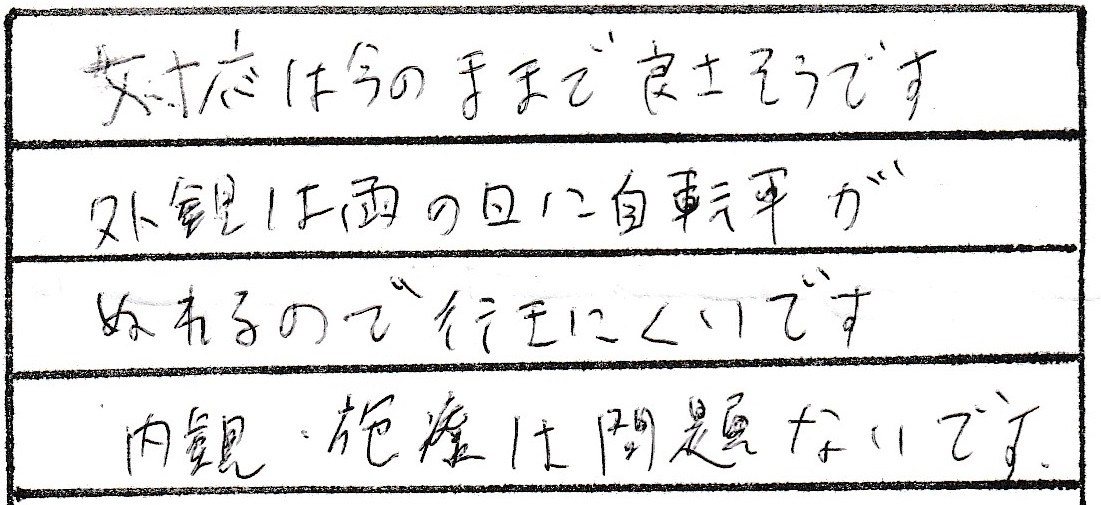 対応は今のままで良さそうです
外観は雨の日に自転車が
ぬれるので行きにくいです
内観・施療は問題ないです.